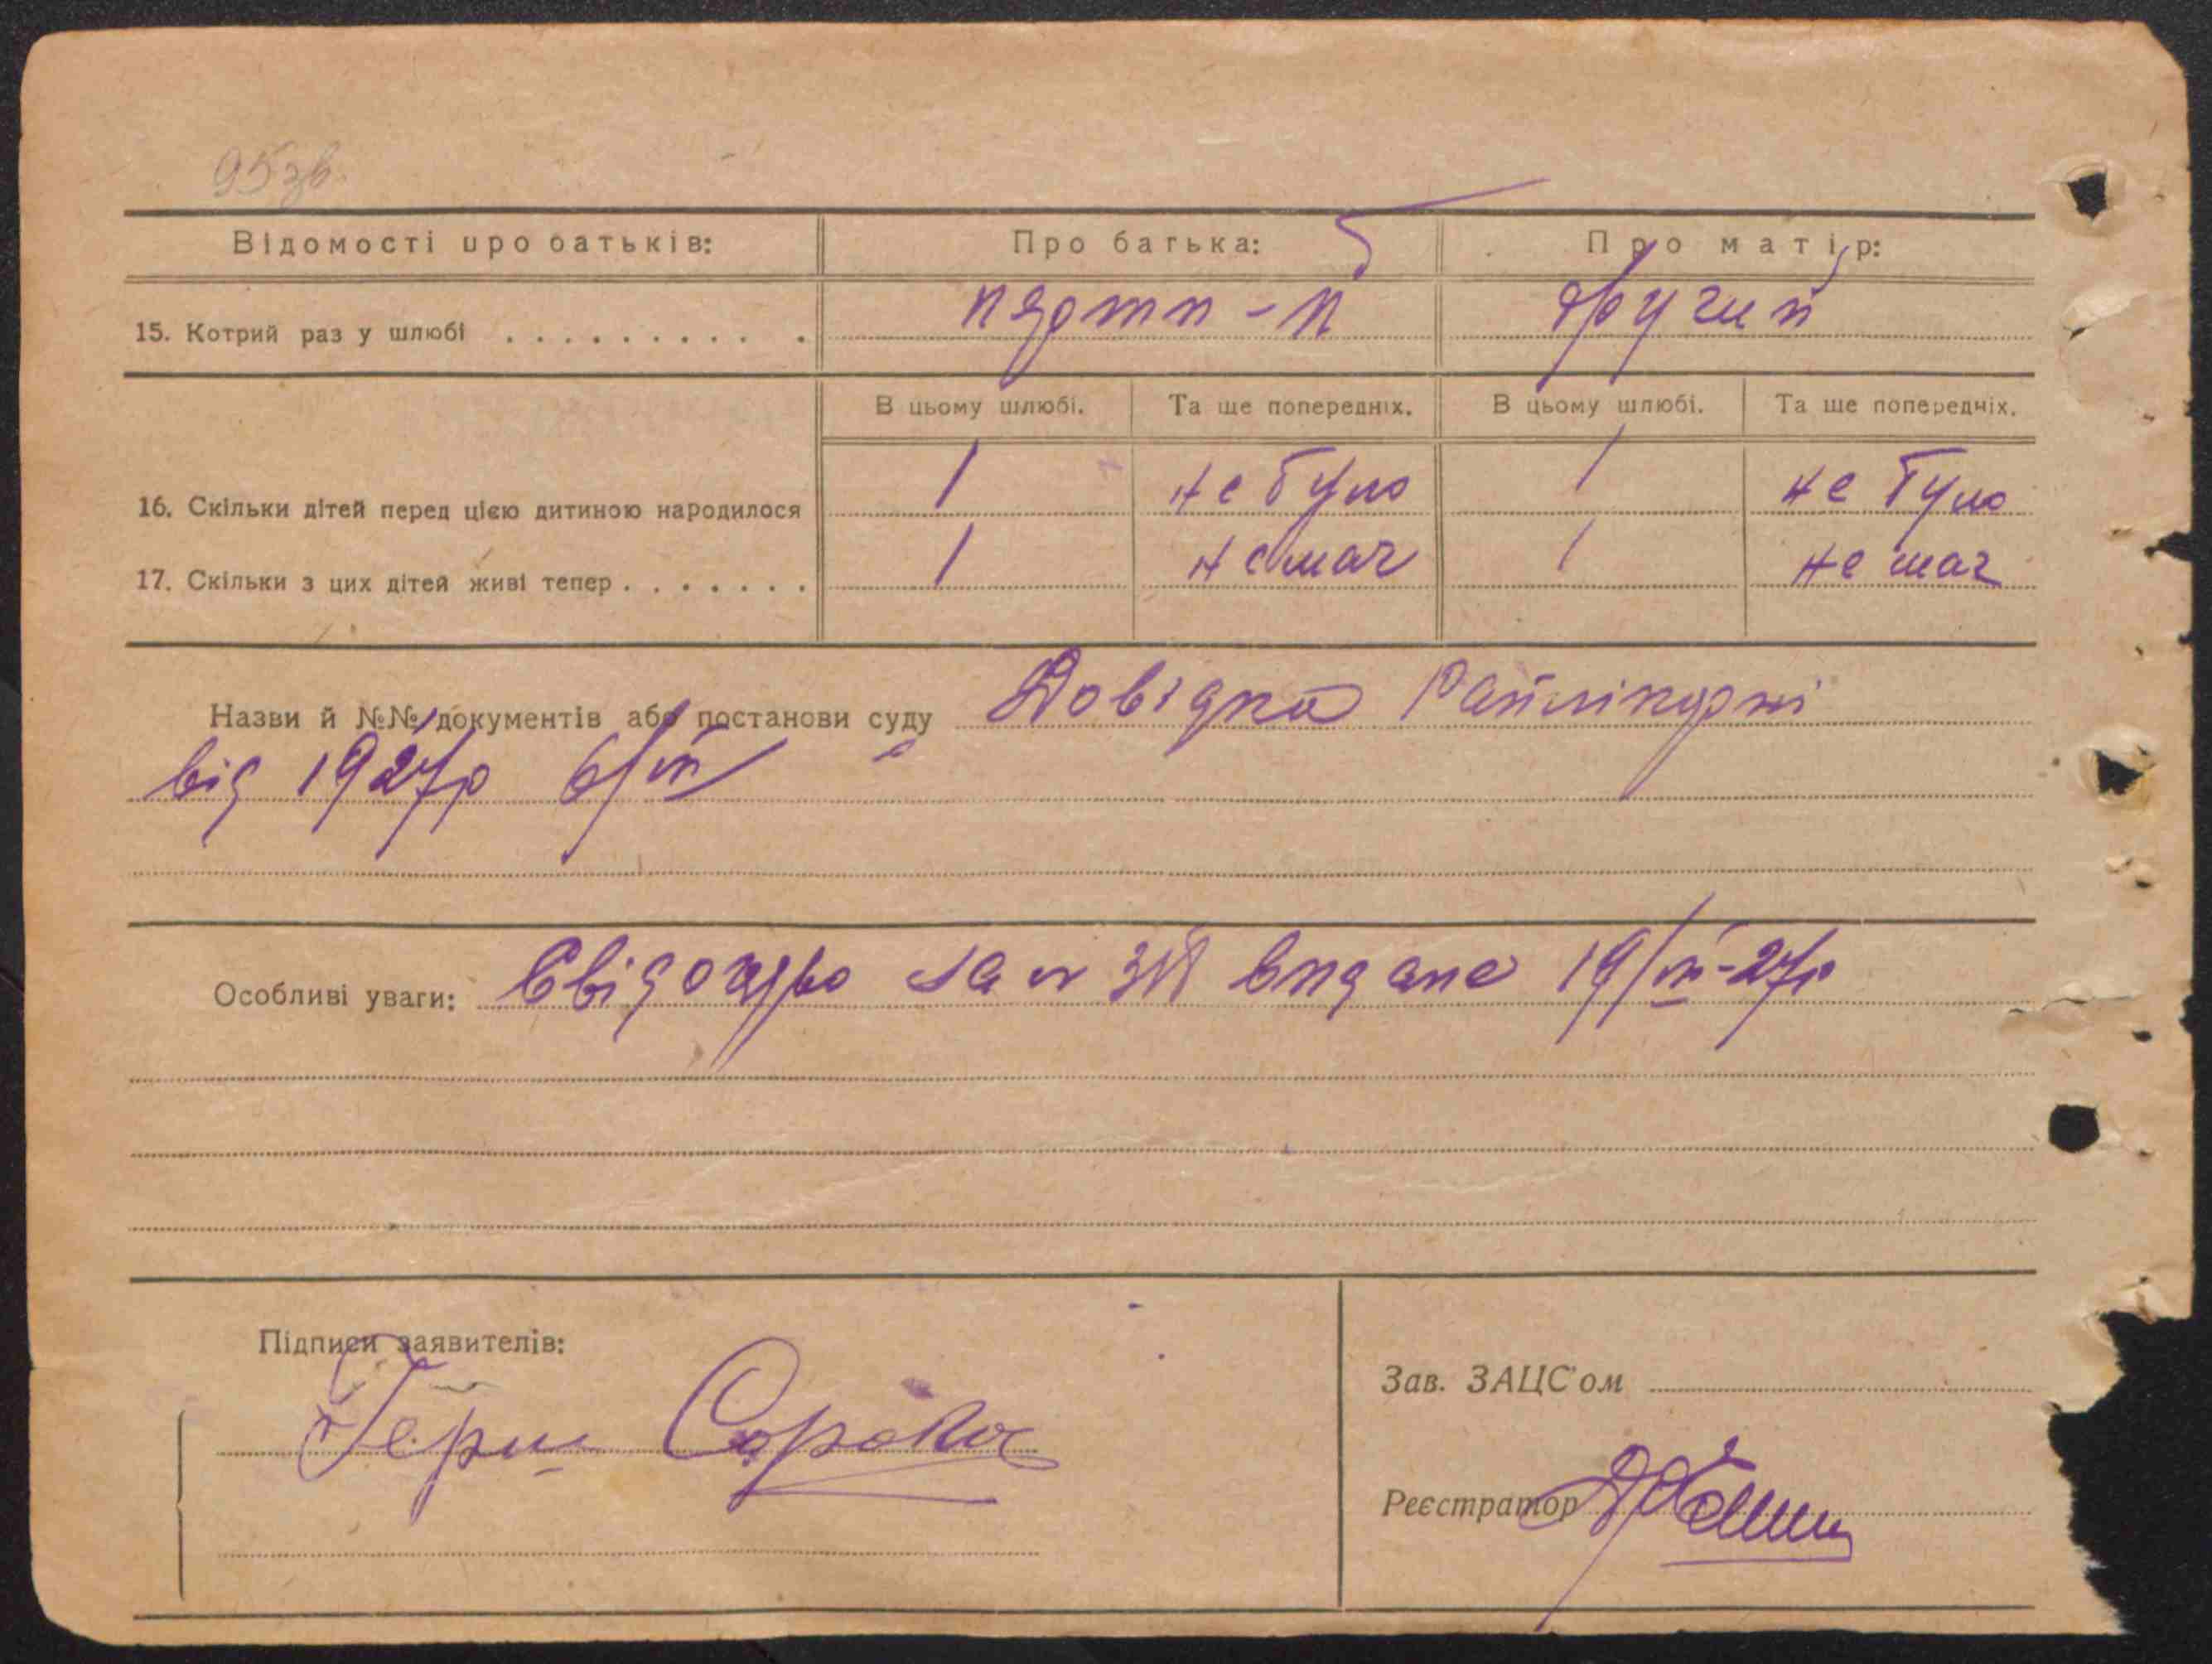 95 зв.
Відомості про батьків: Про батька: Про матір:
15. Котрий раз у шлюбі . . . . . . . . . . другий
В цьому шлюбі. Та ще попередніх. В цьому шлюбі. Та ще попередніх.
16. Скільки дітей перед цією дитиною народилося 1 не було 1 не було
17. Скільки з цих дітей живі тепер . . . . . . . 1 немає 1 немає
Назви й №№ документів або постанови суду Довідка Райлікарні
від 1927р 6/VI
Особливі уваги: Свідоцтво за № видане 19/VI-27р
Підписи заявителів:
Герш
Зав. ЗАЦС'ом
Реєстратор